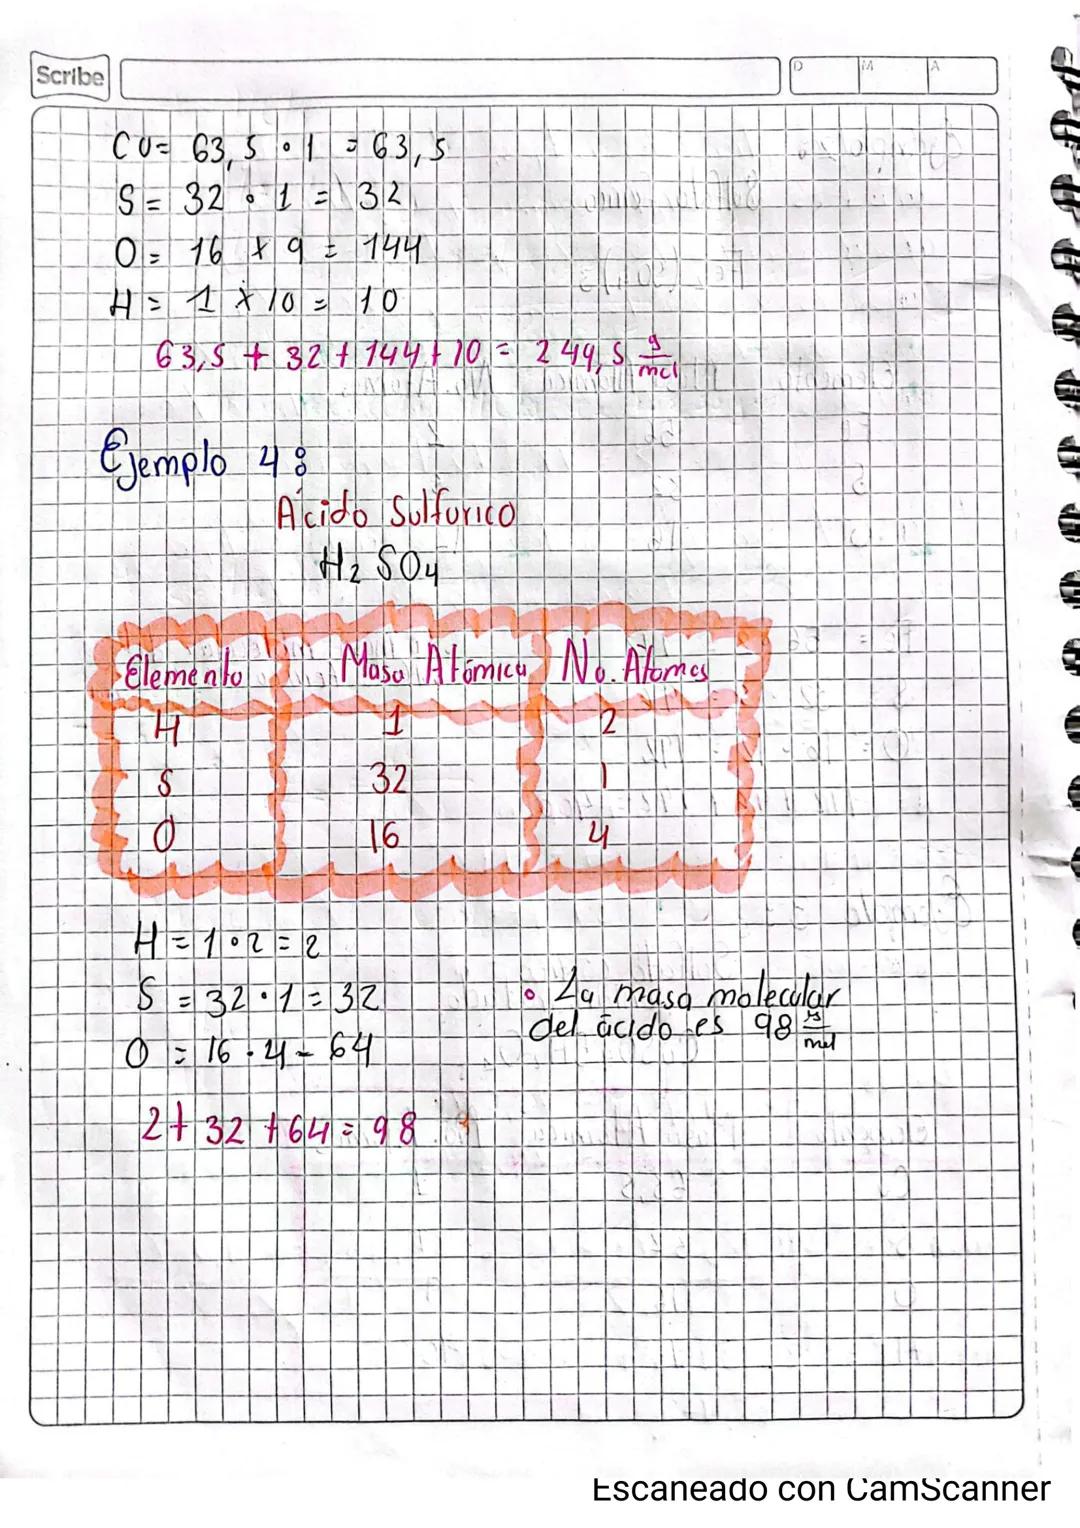 Scribe
D M A
CU= 63,5 • 1 = 63,5
S = 32 • 1 = 32
O = 16 x 9 = 144
H = 1 x 10 = 10
63,5 + 32 + 144 + 10 = 249,5 g/mol
Ejemplo 4:
Ácido Sulfurico
H2 SO4
Elemento Masa Atómica No. Átomos
H 1 2
S 32 1
O 16 4
H = 1 • 2 = 2
S = 32 • 1 = 32
O = 16 • 4 = 64
• La masa molecular
del ácido es 98 g/mol
2 + 32 + 64 = 98
Escaneado con CamScanner